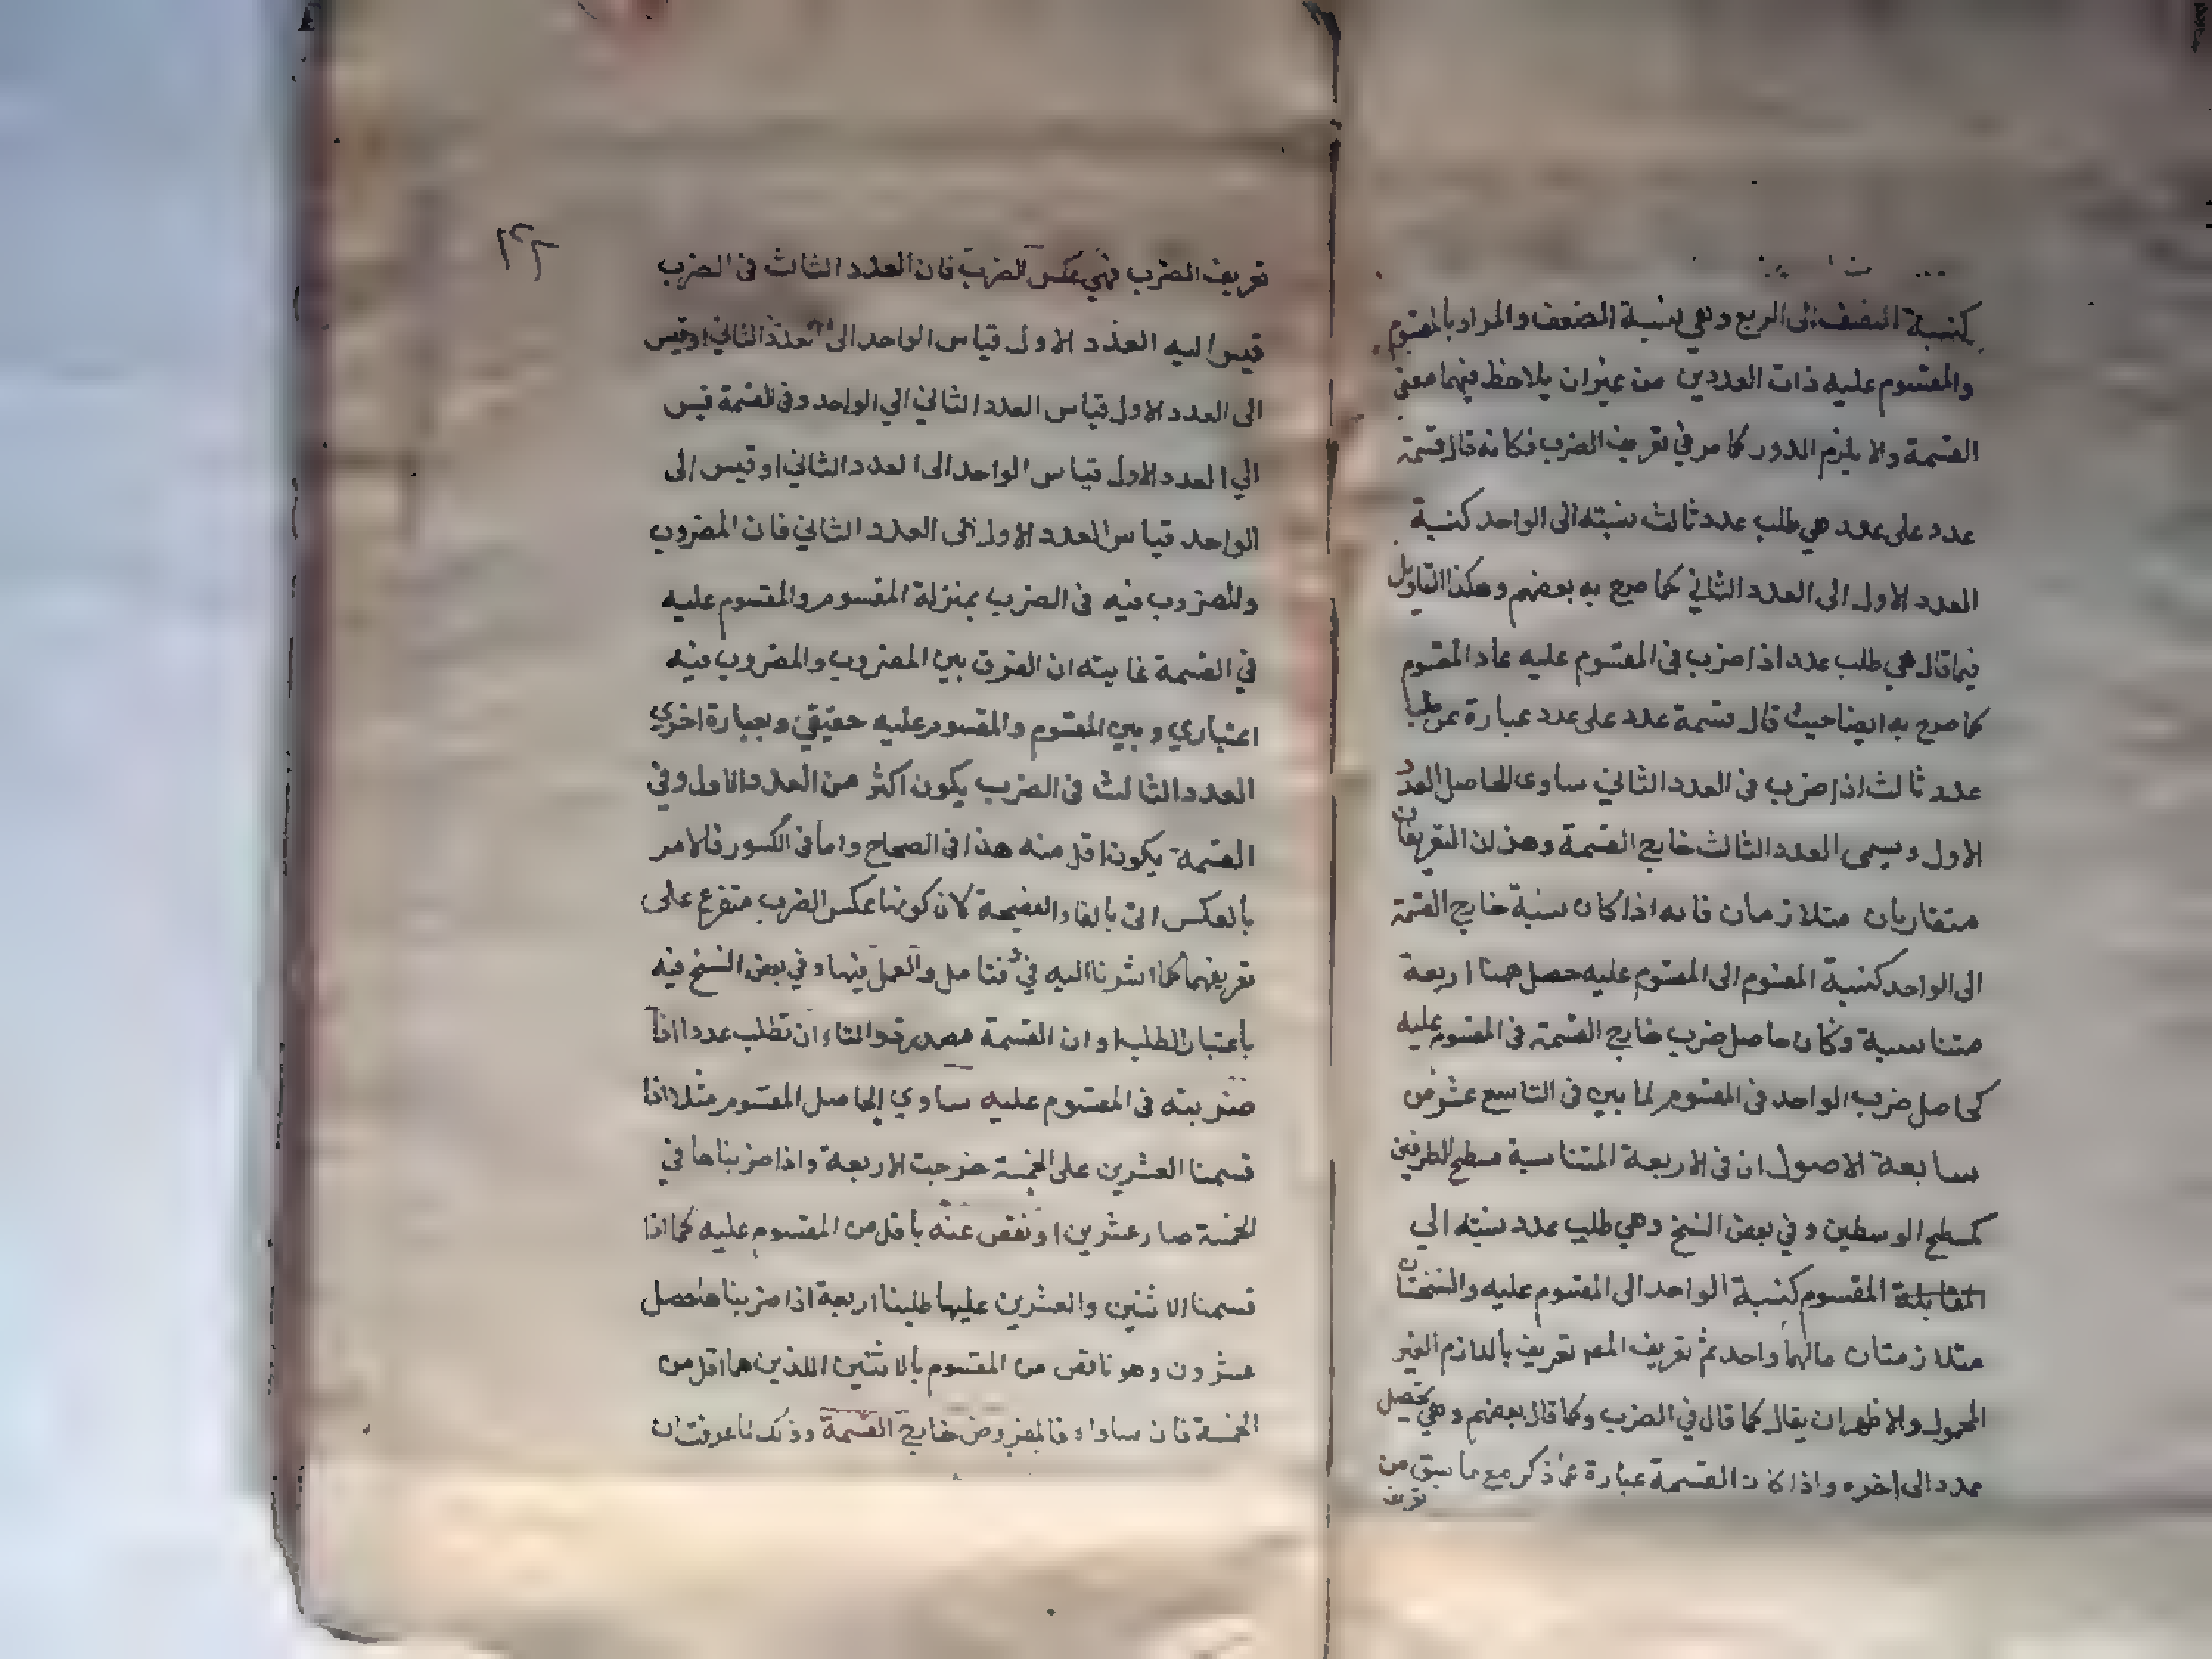 كنسبة النصف الى الربع وهي نسبة الضعف والمراد بالمقسوم
والمقسوم عليه ذات العددين من غيران يلاحظ فيهما معنى
القسمة والا يلزم الدور كما مر في تعريف الضرب فكانه قال قسمة
عدد على عدد هي طلب عدد ثالث نسبته الى الواحد كنسبة
العدد الاول الى العدد الثاني كما صرح به بعضهم وهكذا التاويل
فيما قال هي طلب عدد اذا ضرب في المقسوم عليه عاد المقسوم
كما صرح به ايضا حيث قال قسمة عدد على عدد عبارة عن طلب
عدد ثالث اذا ضرب في العدد الثاني ساوى الحاصل العدد
الاول ويسمى العدد الثالث خارج القسمة وهذان التعريفان
متقاربان متلازمان فانه اذا كان نسبة خارج القسمة
الى الواحد كنسبة المقسوم الى المقسوم عليه حصل ههنا اربعة
متناسبة وكان حاصل ضرب خارج القسمة في المقسوم عليه
كحاصل ضرب الواحد في المقسوم لما بين في التاسع عشر من
سابعة الاصول ان في الاربعة المتناسبة مسطح الطرفين
كمسطح الوسطين وفي بعض النسخ وهي طلب عدد نسبته الي
المقابلة المقسوم كنسبة الواحد الى المقسوم عليه والنسختان
متلازمتان مالهما واحد ثم تعريف المصم تعريف باللازم الغير
المحمول والاظهر ان يقال كما قال في الضرب وكما قال بعضهم وهي تحصيل
عدد الى اخره واذا كان القسمة عبارة عما ذكر مع ما سبق من
تعريف
١٢٢
تعريف الضرب فهي عكس الضرب فان العدد الثالث في الضرب
قيس اليه العدد الاول قياس الواحد الى العدد الثاني او قيس
الى العدد الاول قياس العدد الثاني الي الواحد وفي القسمة قيس
الي العدد الاول قياس الواحد الى العدد الثاني او قيس الى
الواحد قياس العدد الاول الى العدد الثاني فان المضروب
والمضروب فيه في الضرب بمنزلة المقسوم والمقسوم عليه
في القسمة غايته ان الفرق بين المضروب والمضروب فيه
اعتباري وبين المقسوم والمقسوم عليه حقيقي وبعبارة اخرى
العدد الثالث في الضرب يكون اكثر من العدد الاول وفي
القسمة يكون اقل منه هذا في الصحاح واما في الكسور فالامر
بالعكس اتى بالفاء الفصيحة لان كونها عكس الضرب متفرع على
تعريفهما كما اشرنا اليه في فتامل والعمل فيها وفي بعض النسخ فيه
باعتبار الطلب او ان القسمة مصدر ذو التاء ان تطلب عددا اذا
ضربته في المقسوم عليه ساوي الحاصل المقسوم مثلا اذا
قسمنا العشرين على الخمسة خرجت الاربعة واذا ضربناها في
الخمسة صار عشرين او نقص عنه باقل من المقسوم عليه كما اذا
قسمنا الاثنين والعشرين عليها طلبنا اربعة اذا ضربناها حصل
عشرون وهو ناقص من المقسوم بالاثنين اللذين هما اقل من
الخمسة فان ساواه فالمفروض خارج القسمة وذلك لما عرفت ان